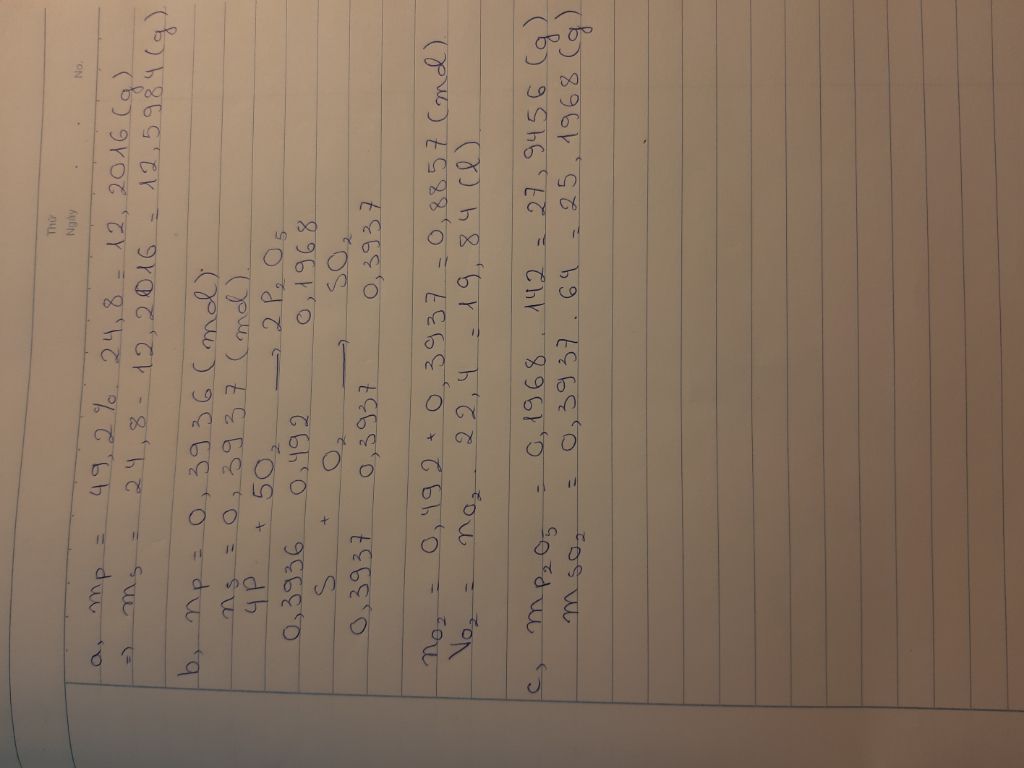 Thứ
Ngày
No.
a, mP = 49,2%. 24,8 = 12,2016 (g)
=) mS = 24,8 - 12,2016 = 12,5984 (g).
b, nP = 0,3936 (mol)
nS = 0,3937 (mol)
4P + 5O2 → 2P2O5
0,3936 0,492 0,1968
S + O2 → SO2
0,3937 0,3937 0,3937
nO2 = 0,492 + 0,3937 = 0,8857 (mol)
VO2 = nO2 . 22,4 = 19,84 (l)
c, mP2O5 = 0,1968. 142 = 27,9456 (g)
mSO2 = 0,3937. 64 = 25,1968 (g)